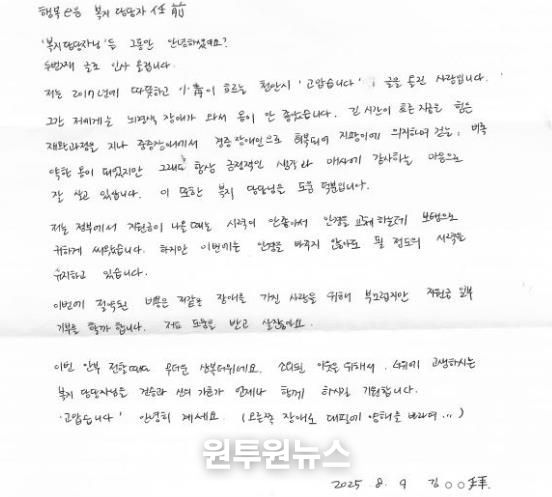 행복e음 복지 담당자 任前
'복지담당자님'들 그동안 안녕하셨어요?
두번째 글로 인사 올립니다.
저는 2017년에 따뜻하고 흐르는 천안시 '고맙습니다' 글을 올린 사람입니다.
그간 저에게는 뇌경색 장애가 와서 몸이 안 좋았습니다. 긴 시간이 흐른 지금은 힘든
재활과정을 지나 중증장애에서 경증장애인으로 회복되어 지팡이에 의지하여 걷는, 비록
약한 몸이 되었지만 그래도 항상 긍정적인 생각과 매사에 감사하는 마음으로
잘 살고 있습니다. 이 또한 복지 담당님들 도움 덕분입니다.
저는 정부에서 지원금이 나올 때는 시력이 안좋아서 안경을 교체하는데 보탬으로
귀하게 써왔습니다. 하지만 이번에는 안경을 바꾸지 않아도 될 정도의 시력을
유지하고 있습니다.
이번에 절약된 비용은 저같은 장애를 가진 사람을 위해 부끄럽지만 지원금 일부
기부를 할까 합니다. 저도 도움을 받고 살잖아요.
이번 안부 전할때도 무더운 삼복더위네요. 소외된 이웃을 위해서 고생하시는
복지 담당자님들 건승과 신의 가호가 언제나 함께 하시길 기원합니다.
'고맙습니다' 안녕히 계세요. (오른쪽 장애로 대필에 양해를 바라며...)
2025 8. 9 김○○
원투원뉴스